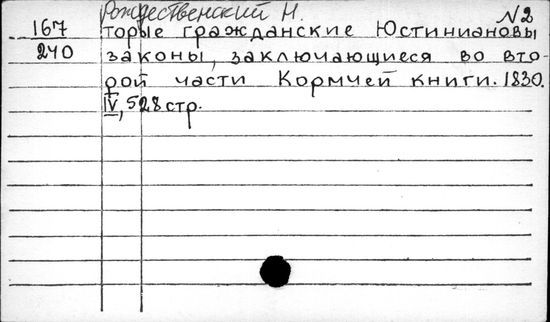 Рождественский Н. N2
167 торые гражданские Юстиниановы
240 законы, заключающиеся во вто-
рой части Кормчей книги. 1830.
IV, 528 стр.